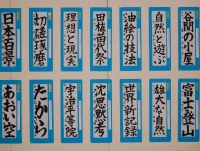 谷間の小屋
自然と遊ぶ
油絵の技法
田植四代祭
理想と現実
切磋琢磨
日本百景
富士登山
雄大な自然
世界新記録
沈思黙考
宇治平等院
たから
あおい空